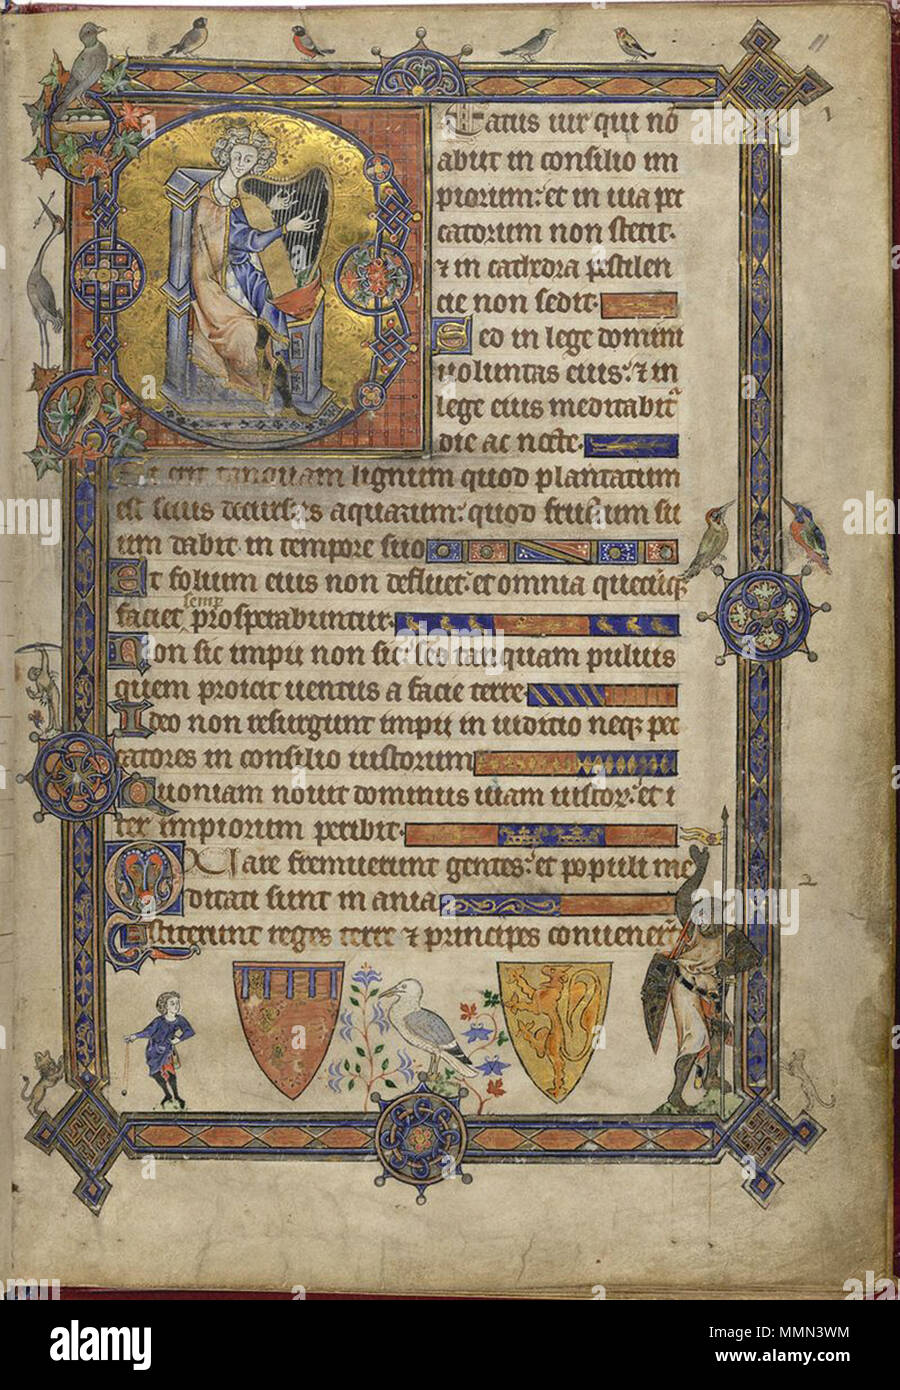 eatus uir qui nō
abiit in consilio im
piorum: et in uia pec
catorum non stetit.
⁊ in cathedra pestilen
cie non sedit.
Sed in lege domini
uoluntas eius: ⁊ in
lege eius meditabit᷑
die ac nocte.
Et erit tanquam lignum quod plantatum
est secus decursus aquarum: quod fructum su
um dabit in tempore suo
Et folium eius non defluet: et omnia quecūq;
semp
faciet prosperabuntur.
Non sic impii non sic: sed tanquam puluis
quem proicit uentus a facie terre
Ideo non resurgunt impii in iudicio neq; pec
catores in consilio iustorum
Quoniam nouit dominus uiam iustoꝝ: et i
ter impiorum peribit.
Quare fremuerunt gentes: et populi me
ditati sunt inania
Astiterunt reges terre ⁊ principes conuener̄t
11
1
2
a
alamy
Image ID: MMN3WM
www.alamy.com